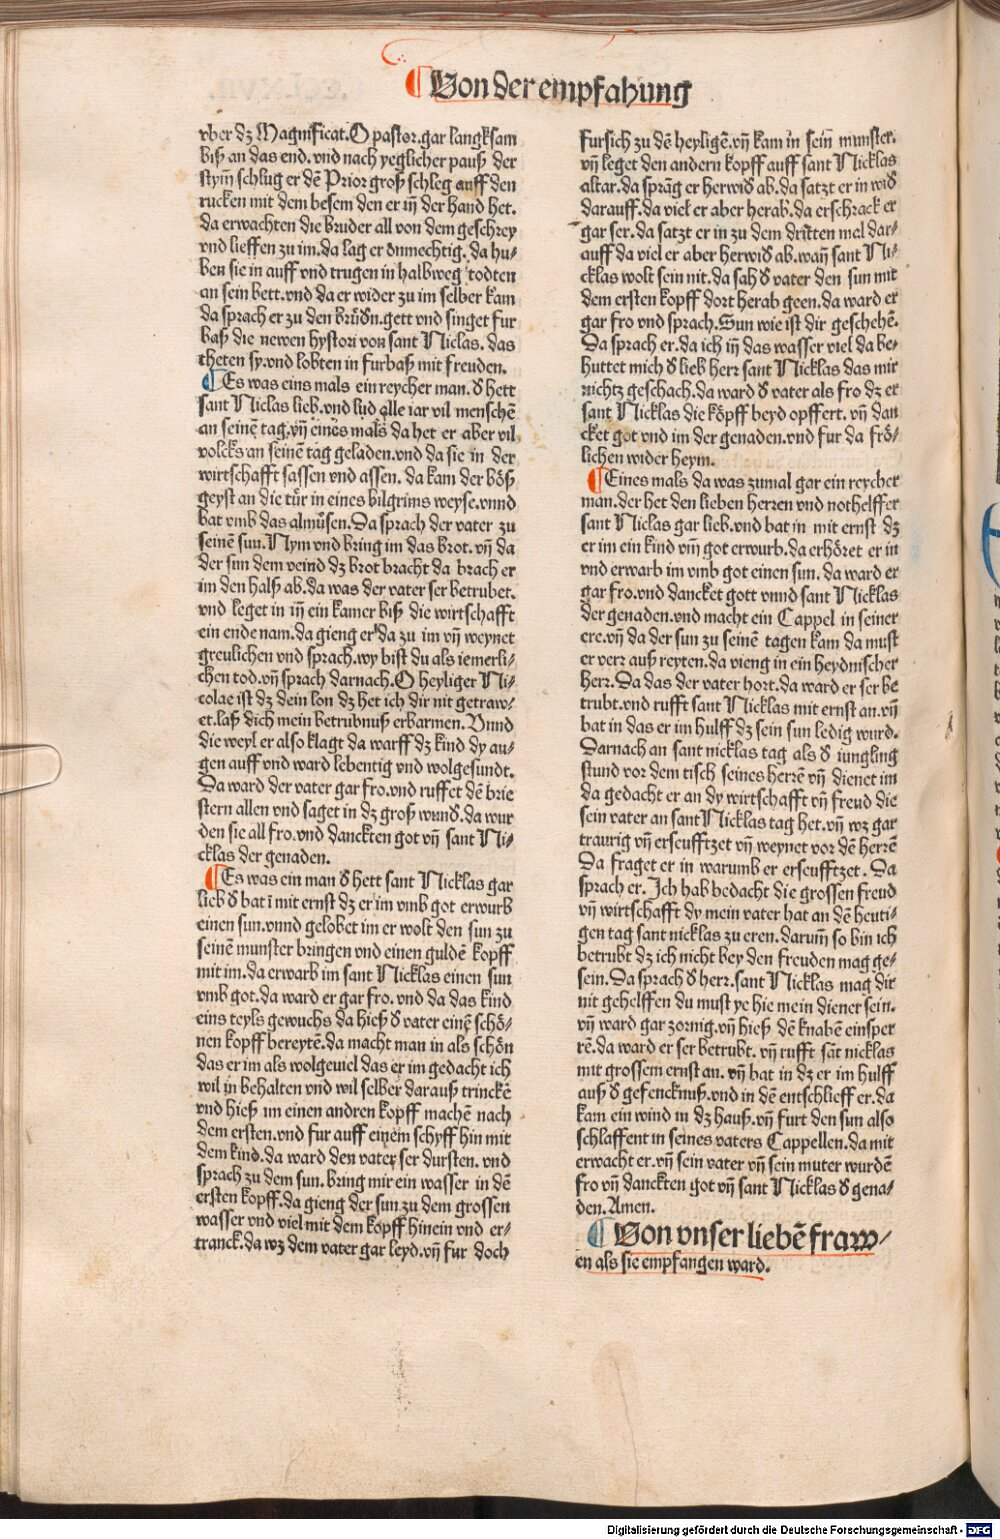 Von der empfahung
vber dz Magnificat. O pastor. gar langksam
biß an das end. vnd nach yeglicher pauß der
stym̄ schlug er dē Prior groß schleg auff den
rucken mit dem besem den er in̄ der hand het.
da erwachten die bruder all von dem geschrey
vnd lieffen zu im. da lag er onmechtig. da hu⸗
ben sie in auff vnd trugen in halbweg todten
an sein bett. vnd da er wider zu im selber kam
da sprach er zu den brūdn. gett vnd singet fur
baß die newen hystori von sant Niclas. das
theten sy. vnd lobten in furbaß mit freuden.
Es was eins mals ein reycher man. d hett
sant Niclas lieb. vnd lud alle iar vil menschē
an seinē tag. vn̄ eines mals da het er aber vil
volcks an seinē tag geladen. vnd da sie in der
wirtschafft sassen vnd assen. da kam der böß
geyst an die tür in eines bilgrims weyse. vnnd
bat vmb das almůsen. Da sprach der vater zu
seinē sun. Nym vnd bring im das brot. vn̄ da
der sun dem veind dz brot bracht da brach er
im den halß ab. da was der vater ser betrubet.
vnd leget in in̄ ein kamer biß die wirtschafft
ein ende nam. da gieng er da zu im vn̄ weynet
greulichen vnd sprach. wy bist du als iemerli⸗
chen tod. vn̄ sprach darnach. O heyliger Ni⸗
colae ist dz dein lon dz het ich dir nit getraw⸗
et. laß dich mein betrubnuß erbarmen. Vnnd
die weyl er also klagt da warff dz kind dy au⸗
gen auff vnd ward lebentig vnd wolgesundt.
Da ward der vater gar fro. vnd ruffet dē brie
stern allen vnd saget in dz groß wund. da wur
den sie all fro. vnd danckten got vn̄ sant Ni⸗
cklas der genaden.
Es was ein man d hett sant Nicklas gar
lieb d bat ī mit ernst dz er im vmb got erwurb
einen sun. vnnd gelobet im er wolt den sun zu
seinē munster bringen vnd einen guldē kopff
mit im. da erwarb im sant Nicklas einen sun
vmb got. da ward er gar fro. vnd da das kind
eins teyls gewuchs da hieß d vater einē schö⸗
nen kopff bereytē. da macht man in als schön
das er im als wolgeuiel das er im gedacht ich
wil in behalten vnd wil selber darauß trinckē
vnd hieß im einen andren kopff machē nach
dem ersten. vnd fur auff einem schyff hin mit
dem kind. da ward den vater ser dursten. vnd
sprach zu dem sun. bring mir ein wasser in dē
ersten kopff. da gieng der sun zu dem grossen
wasser vnd viel mit dem kopff hinein vnd er⸗
tranck. da wz dem vater gar leyd. vn̄ fur doch
fursich zu dē heyligē. vn̄ kam in sein̄ munster.
vn̄ leget den andern kopff auff sant Nicklas
altar. da sprāg er herwid ab. da satzt er in wid
darauff. da viel er aber herab. da erschrack er
gar ser. da satzt er in zu dem dritten mal dar⸗
auff da viel er aber herwid ab. wan̄ sant Ni⸗
cklas wolt sein nit. da sah d vater den sun mit
dem ersten kopff dort herab geen. da ward er
gar fro vnd sprach. Sun wie ist dir geschehē.
Da sprach er. da ich in̄ das wasser viel da be⸗
huttet mich d lieb herr sant Nicklas das mir
nichtz geschach. da ward d vater als fro dz er
sant Nicklas die köpff beyd opffert. vn̄ dan
cket got vnd im der genaden. vnd fur da frö⸗
lichen wider heym.
Eines mals da was zumal gar ein reycher
man. der het den lieben herren vnd nothelffer
sant Niclas gar lieb. vnd bat in mit ernst dz
er im ein kind vm̄ got erwurb. da erhöret er in
vnd erwarb im vmb got einen sun. da ward er
gar fro. vnd dancket gott vnnd sant Nicklas
der genaden. vnd macht ein Cappel in seiner
ere. vn̄ da der sun zu seinē tagen kam da must
er verr auß reyten. da vieng in ein heydnischer
herr. Da das der vater hort. da ward er ser be
trubt. vnd rufft sant Nicklas mit ernst an. vn̄
bat in das er im hulff dz sein sun ledig wurd.
Darnach an sant nicklas tag als d iungling
stund vor dem tisch seines herrē vn̄ dienet im
da gedacht er an dy wirtschafft vn̄ freud die
sein vater an sant Nicklas tag het. vn̄ wz gar
traurig vn̄ erseufftzet vn̄ weynet vor dē herrē
Da fraget er in warumb er erseufftzet. Da
sprach er. Ich hab bedacht die grossen freud
vn̄ wirtschafft dy mein vater hat an dē heuti⸗
gen tag sant nicklas zu eren. darum̄ so bin ich
betrubt dz ich nicht bey den freuden mag ge⸗
sein. Da sprach d herr. sant Nicklas mag dir
nit gehelffen du must ye hie mein diener sein.
vn̄ ward gar zornig. vn̄ hieß dē knaben einsper
rē. da ward er ser betrubt. vn̄ rufft sāt nicklas
mit grossem ernst an. vn̄ bat in dz er im hulff
auß d gefencknuß. vnd in dē entschlieff er. da
kam ein wind in dz hauß. vn̄ furt den sun also
schlaffent in seines vaters Cappellen. da mit
erwacht er. vn̄ sein vater vn̄ sein muter wurdē
fro vn̄ danckten got vn̄ sant Nicklas d gena⸗
den. Amen.
Von vnser liebē fraw⸗
en als sie empfangen ward.
Digitalisierung gefördert durch die Deutsche Forschungsgemeinschaft - DFG